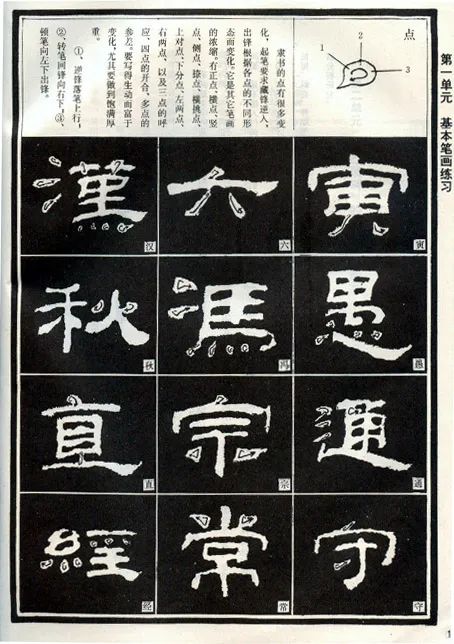 第一单元 基本笔画练习
点
1
2
3
隶书的点有很多变
化，起笔要求藏锋逆入，
出锋根据各点的不同形
态而变化。它是其它笔画
的浓缩。有正点、横点、竖
点、侧点、捺点、横挑点、
上对点、下分点、左两点、
右两点，以及三点的呼
应，四点的开合，多点的
参差。要写得生动而富于
变化，尤其要做到饱满厚
重。
①、逆锋落笔上行，
②、转笔回锋向右下，③、
顿笔向左下出锋。
寅
寅
愚
愚
通
通
守
守
六
六
馮
冯
宗
宗
常
常
漢
汉
秋
秋
直
直
經
经
1